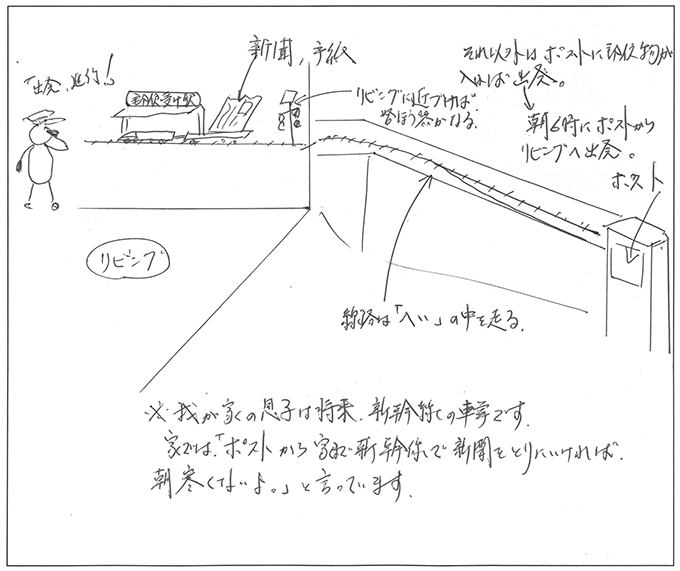 「出発、進行!」
郵便受付状
新聞,手紙
リビングに近づけば
警ほう器がなる.
それ以外はポストに郵便物が
入れば出発。
朝6時にポストから
リビングへ出発。
ポスト
リビング
線路は「へい」の中を走る.
※我が家の息子は将来、新幹線の車掌です.
家では、「ポストから家まで新幹線で新聞をとりにいければ、
朝寒くないよ。」と言っています.